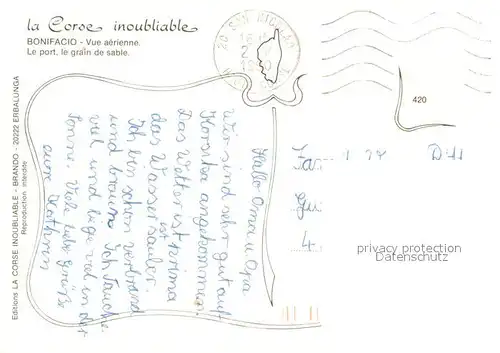 la Corse inoubliable
BONIFACIO - Vue aérienne.
Le port, le grain de sable.
20 SAN NICOLAO
420
Editions LA CORSE INOUBLIABLE - BRANDO - 20222 ERBALUNGA
Reproduction interdite
Hallo Oma u. Opa
Wir sind sehr gut auf
Korsika angekommen.
Das Wetter ist prima
das Wasser ist sauber.
Ich bin schon verbrand
und braun. Ich Tauche
viel und liege viel in der
Sonne. Viele liebe Grüße
eure Kathrin
privacy protection
Datenschutz